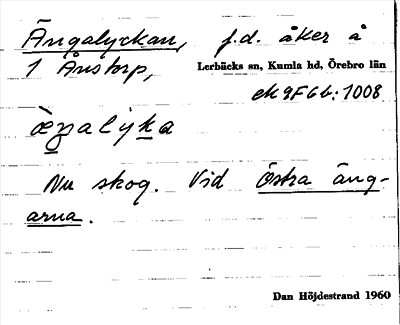 Ängalyckan, f.d. åker å
1 Ånstorp,
Lerbäcks sn, Kumla hd, Örebro län
ek 9F6b:1008
æ̀ŋalyka
Nu skog. Vid Östra äng-
arna.
Dan Höjdestrand 1960